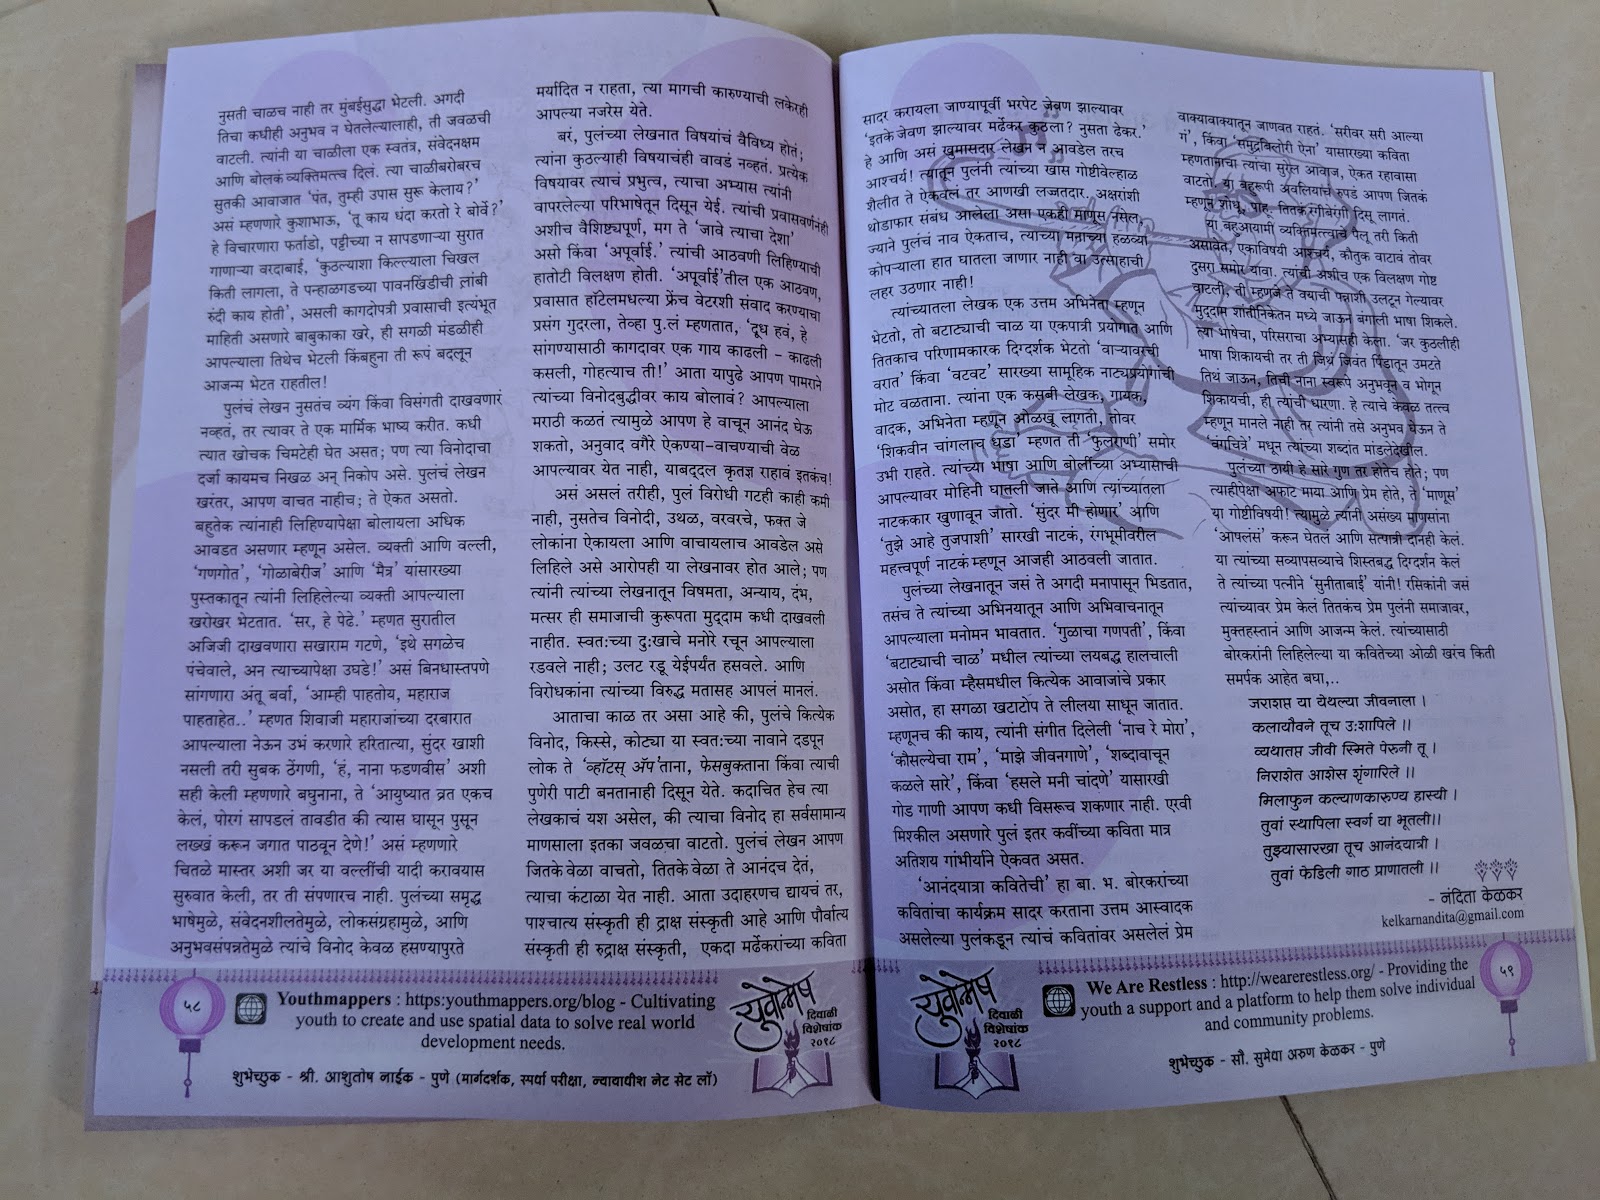 नुसती चाळच नाही तर मुंबईसुद्धा भेटली. अगदी
तिचा कधीही अनुभव न घेतलेल्यालाही, ती जवळची
वाटली. त्यांनी या चाळीला एक स्वतंत्र, संवेदनक्षम
आणि बोलकं व्यक्तिमत्त्व दिलं. त्या चाळीबरोबरच
सुतकी आवाजात ‘पंत, तुम्ही उपास सुरू केलाय?’
असं म्हणणारे कुशाभाऊ, ‘तू काय धंदा करतो रे बोर्वे?’
हे विचारणारा फर्ताडो, पट्टीच्या न सापडणाऱ्या सुरात
गाणाऱ्या वरदाबाई, ‘कुठल्याशा किल्ल्याला चिखल
किती लागला, ते पन्हाळगडच्या पावनखिंडीची लांबी
रुंदी काय होती’, असली कागदोपत्री प्रवासाची इत्यंभूत
माहिती असणारे बाबुकाका खरे, ही सगळी मंडळीही
आपल्याला तिथेच भेटली किंबहुना ती रूपं बदलून
आजन्म भेटत राहतील!
पुलंचं लेखन नुसतंच व्यंग किंवा विसंगती दाखवणारं
नव्हतं, तर त्यावर ते एक मार्मिक भाष्य करीत. कधी
त्यात खोचक चिमटेही घेत असत; पण त्या विनोदाचा
दर्जा कायमच निखळ अन् निकोप असे. पुलंचं लेखन
खरंतर, आपण वाचत नाहीच; ते ऐकत असतो.
बहुतेक त्यांनाही लिहिण्यापेक्षा बोलायला अधिक
आवडत असणार म्हणून असेल. व्यक्ती आणि वल्ली,
‘गणगोत’, ‘गोळाबेरीज’ आणि ‘मैत्र’ यांसारख्या
पुस्तकातून त्यांनी लिहिलेल्या व्यक्ती आपल्याला
खरोखर भेटतात. ‘सर, हे पेढे.’ म्हणत सुरातील
अजिजी दाखवणारा सखाराम गटणे, ‘इथे सगळेच
पंचेवाले, अन त्याच्यापेक्षा उघडे!’ असं बिनधास्तपणे
सांगणारा अंतू बर्वा, ‘आम्ही पाहतोय, महाराज
पाहताहेत..’ म्हणत शिवाजी महाराजांच्या दरबारात
आपल्याला नेऊन उभं करणारे हरितात्या, सुंदर खाशी
नसली तरी सुबक ठेंगणी, ‘हं, नाना फडणवीस’ अशी
सही केली म्हणणारे बघुनाना, ते ‘आयुष्यात व्रत एकच
केलं, पोरगं सापडलं तावडीत की त्यास घासून पुसून
लख्खं करून जगात पाठवून देणे!’ असं म्हणणारे
चितळे मास्तर अशी जर या वल्लींची यादी करावयास
सुरुवात केली, तर ती संपणारच नाही. पुलंच्या समृद्ध
भाषेमुळे, संवेदनशीलतेमुळे, लोकसंग्रहामुळे, आणि
अनुभवसंपन्नतेमुळे त्यांचे विनोद केवळ हसण्यापुरते
मर्यादित न राहता, त्या मागची कारुण्याची लकेरही
आपल्या नजरेस येते.
बरं, पुलंच्या लेखनात विषयांचं वैविध्य होतं;
त्यांना कुठल्याही विषयाचंही वावडं नव्हतं. प्रत्येक
विषयावर त्याचं प्रभुत्व, त्याचा अभ्यास त्यांनी
वापरलेल्या परिभाषेतून दिसून येई. त्यांची प्रवासवर्णनंही
अशीच वैशिष्ट्यपूर्ण, मग ते ‘जावे त्याचा देशा’
असो किंवा ‘अपूर्वाई.’ त्यांची आठवणी लिहिण्याची
हातोटी विलक्षण होती. ‘अपूर्वाई’तील एक आठवण,
प्रवासात हॉटेलमधल्या फ्रेंच वेटरशी संवाद करण्याचा
प्रसंग गुदरला, तेव्हा पु.लं म्हणतात, ‘दूध हवं, हे
सांगण्यासाठी कागदावर एक गाय काढली - काढली
कसली, गोहत्याच ती!’ आता यापुढे आपण पामराने
त्यांच्या विनोदबुद्धीवर काय बोलावं? आपल्याला
मराठी कळतं त्यामुळे आपण हे वाचून आनंद घेऊ
शकतो, अनुवाद वगैरे ऐकण्या-वाचण्याची वेळ
आपल्यावर येत नाही, याबद्दल कृतज्ञ राहावं इतकंच!
असं असलं तरीही, पुलं विरोधी गटही काही कमी
नाही, नुसतेच विनोदी, उथळ, वरवरचे, फक्त जे
लोकांना ऐकायला आणि वाचायलाच आवडेल असे
लिहिले असे आरोपही या लेखनावर होत आले; पण
त्यांनी त्यांच्या लेखनातून विषमता, अन्याय, दंभ,
मत्सर ही समाजाची कुरूपता मुद्दाम कधी दाखवली
नाहीत. स्वतःच्या दुःखाचे मनोरे रचून आपल्याला
रडवले नाही; उलट रडू येईपर्यंत हसवले. आणि
विरोधकांना त्यांच्या विरुद्ध मतासह आपलं मानलं.
आताचा काळ तर असा आहे की, पुलंचे कित्येक
विनोद, किस्से, कोट्या या स्वतःच्या नावाने दडपून
लोक ते ‘व्हॉटस् ॲप’ताना, फेसबुकताना किंवा त्याची
पुणेरी पाटी बनतानाही दिसून येते. कदाचित हेच त्या
लेखकाचं यश असेल, की त्याचा विनोद हा सर्वसामान्य
माणसाला इतका जवळचा वाटतो. पुलंचं लेखन आपण
जितके वेळा वाचतो, तितके वेळा ते आनंदच देतं,
त्याचा कंटाळा येत नाही. आता उदाहरणच द्यायचं तर,
पाश्चात्य संस्कृती ही द्राक्ष संस्कृती आहे आणि पौर्वात्य
संस्कृती ही रुद्राक्ष संस्कृती, एकदा मर्ढेकरांच्या कविता
५८
Youthmappers : https:youthmappers.org/blog - Cultivating
youth to create and use spatial data to solve real world
development needs.
युवोन्मेष
दिवाळी
विशेषांक
२०१८
शुभेच्छुक - श्री. आशुतोष नाईक - पुणे (मार्गदर्शक, स्पर्धा परीक्षा, न्यायाधीश नेट सेट लॉ)
सादर करायला जाण्यापूर्वी भरपेट जेवण झाल्यावर
‘इतके जेवण झाल्यावर मर्ढेकर कुठला? नुसता ढेकर.’
हे आणि असं खुमासदार लेखन न आवडेल तरच
आश्चर्य! त्यातून पुलंनी त्यांच्या खास गोष्टीवेल्हाळ
शैलीत ते ऐकवलं तर आणखी लज्जतदार. अक्षरांशी
थोडाफार संबंध आलेला असा एकही माणूस नसेल,
ज्याने पुलंचं नाव ऐकताच, त्याच्या मनाच्या हळव्या
कोपऱ्याला हात घातला जाणार नाही वा उत्साहाची
लहर उठणार नाही!
त्यांच्यातला लेखक एक उत्तम अभिनेता म्हणून
भेटतो, तो बटाट्याची चाळ या एकपात्री प्रयोगात आणि
तितकाच परिणामकारक दिग्दर्शक भेटतो ‘वाऱ्यावरची
वरात’ किंवा ‘वटवट’ सारख्या सामूहिक नाट्यप्रयोगांची
मोट वळताना. त्यांना एक कसबी लेखक, गायक,
वादक, अभिनेता म्हणून ओळखू लागतो, तोवर
‘शिकवीन चांगलाच धडा’ म्हणत ती ‘फुलराणी’ समोर
उभी राहते. त्यांच्या भाषा आणि बोलींच्या अभ्यासाची
आपल्यावर मोहिनी घातली जाते आणि त्यांच्यातला
नाटककार खुणावून जातो. ‘सुंदर मी होणार’ आणि
‘तुझे आहे तुजपाशी’ सारखी नाटकं, रंगभूमीवरील
महत्त्वपूर्ण नाटकं म्हणून आजही आठवली जातात.
पुलंच्या लेखनातून जसं ते अगदी मनापासून भिडतात,
तसंच ते त्यांच्या अभिनयातून आणि अभिवाचनातून
आपल्याला मनोमन भावतात. ‘गुळाचा गणपती’, किंवा
‘बटाट्याची चाळ’ मधील त्यांच्या लयबद्ध हालचाली
असोत किंवा म्हैसमधील कित्येक आवाजांचे प्रकार
असोत, हा सगळा खटाटोप ते लीलया साधून जातात.
म्हणूनच की काय, त्यांनी संगीत दिलेली ‘नाच रे मोरा’,
‘कौसल्येचा राम’, ‘माझे जीवनगाणे’, ‘शब्दावाचून
कळले सारे’, किंवा ‘हसले मनी चांदणे’ यासारखी
गोड गाणी आपण कधी विसरूच शकणार नाही. एरवी
मिश्कील असणारे पुलं इतर कवींच्या कविता मात्र
अतिशय गांभीर्याने ऐकवत असत.
‘आनंदयात्रा कवितेची’ हा बा. भ. बोरकरांच्या
कवितांचा कार्यक्रम सादर करताना उत्तम आस्वादक
असलेल्या पुलंकडून त्यांचं कवितांवर असलेलं प्रेम
वाक्यावाक्यातून जाणवत राहतं. ‘सरीवर सरी आल्या
गं’, किंवा ‘समुद्रबिलोरी ऐना’ यासारख्या कविता
म्हणतानाचा त्यांचा सुरेल आवाज, ऐकत रहावासा
वाटतो. या बहुरूपी अवलियाचं रुपडं आपण जितकं
म्हणून शोधू, पाहू तितकं रंगीबेरंगी दिसू लागतं.
या बहुआयामी व्यक्तिमत्त्वाचे पैलू तरी किती
असावेत, एकाविषयी आश्चर्य, कौतुक वाटावं तोवर
दुसरा समोर यावा. त्यांची अशीच एक विलक्षण गोष्ट
वाटली, ती म्हणजे ते वयाची पन्नाशी उलटून गेल्यावर
मुद्दाम शांतीनिकेतन मध्ये जाऊन बंगाली भाषा शिकले.
त्या भाषेचा, परिसराचा अभ्यासही केला. ‘जर कुठलीही
भाषा शिकायची तर ती जिथं जिवंत पिंडातून उमटते
तिथं जाऊन, तिची नाना स्वरूपे अनुभवून व भोगून
शिकायची, ही त्यांची धारणा. हे त्याचे केवळ तत्त्व
म्हणून मानले नाही तर त्यांनी तसे अनुभव घेऊन ते
‘वंगचित्रे’ मधून त्यांच्या शब्दांत मांडलेदेखील.
पुलंच्या ठायी हे सारे गुण तर होतेच होते; पण
त्याहीपेक्षा अफाट माया आणि प्रेम होते, ते ‘माणूस’
या गोष्टीविषयी! त्यामुळे त्यांनी असंख्य माणसांना
‘आपलंसं’ करून घेतलं आणि सत्पात्री दानही केलं.
या त्यांच्या सव्यापसव्याचे शिस्तबद्ध दिग्दर्शन केलं
ते त्यांच्या पत्नीने ‘सुनीताबाई’ यांनी! रसिकांनी जसं
त्यांच्यावर प्रेम केलं तितकंच प्रेम पुलंनी समाजावर,
मुक्तहस्तानं आणि आजन्म केलं. त्यांच्यासाठी
बोरकरांनी लिहिलेल्या या कवितेच्या ओळी खरंच किती
समर्पक आहेत बघा,..
जराशप्त या येथल्या जीवनाला ।
कलायौवने तूच उःशापिले ।।
व्यथातप्त जीवी स्मिते पेरुनी तू ।
निराशेत आशेस शृंगारिले ।।
मिलाफुन कल्याणकारुण्य हास्यी ।
तुवां स्थापिला स्वर्ग या भूतली।।
तुझ्यासारखा तूच आनंदयात्री ।
तुवां फेडिली गाठ प्राणातली ।।
- नंदिता केळकर
kelkarnandita@gmail.com
युवोन्मेष
दिवाळी
विशेषांक
२०१८
We Are Restless : http://wearerestless.org/ - Providing the
youth a support and a platform to help them solve individual
and community problems.
५९
शुभेच्छुक - सौ. सुमेधा अरुण केळकर - पुणे